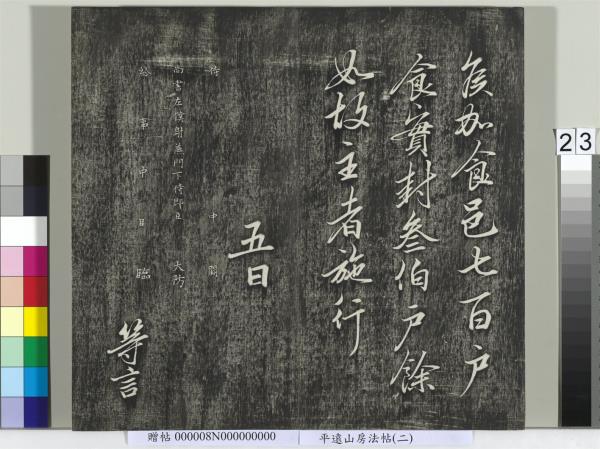 侯加食邑七百戶
食實封叁伯戶餘
如故主者施行
五日
侍中闕
尚書左僕射兼門下侍郎臣大防
給事中臣臨
等言
23
贈帖 000008N000000000 平遠山房法帖(二)